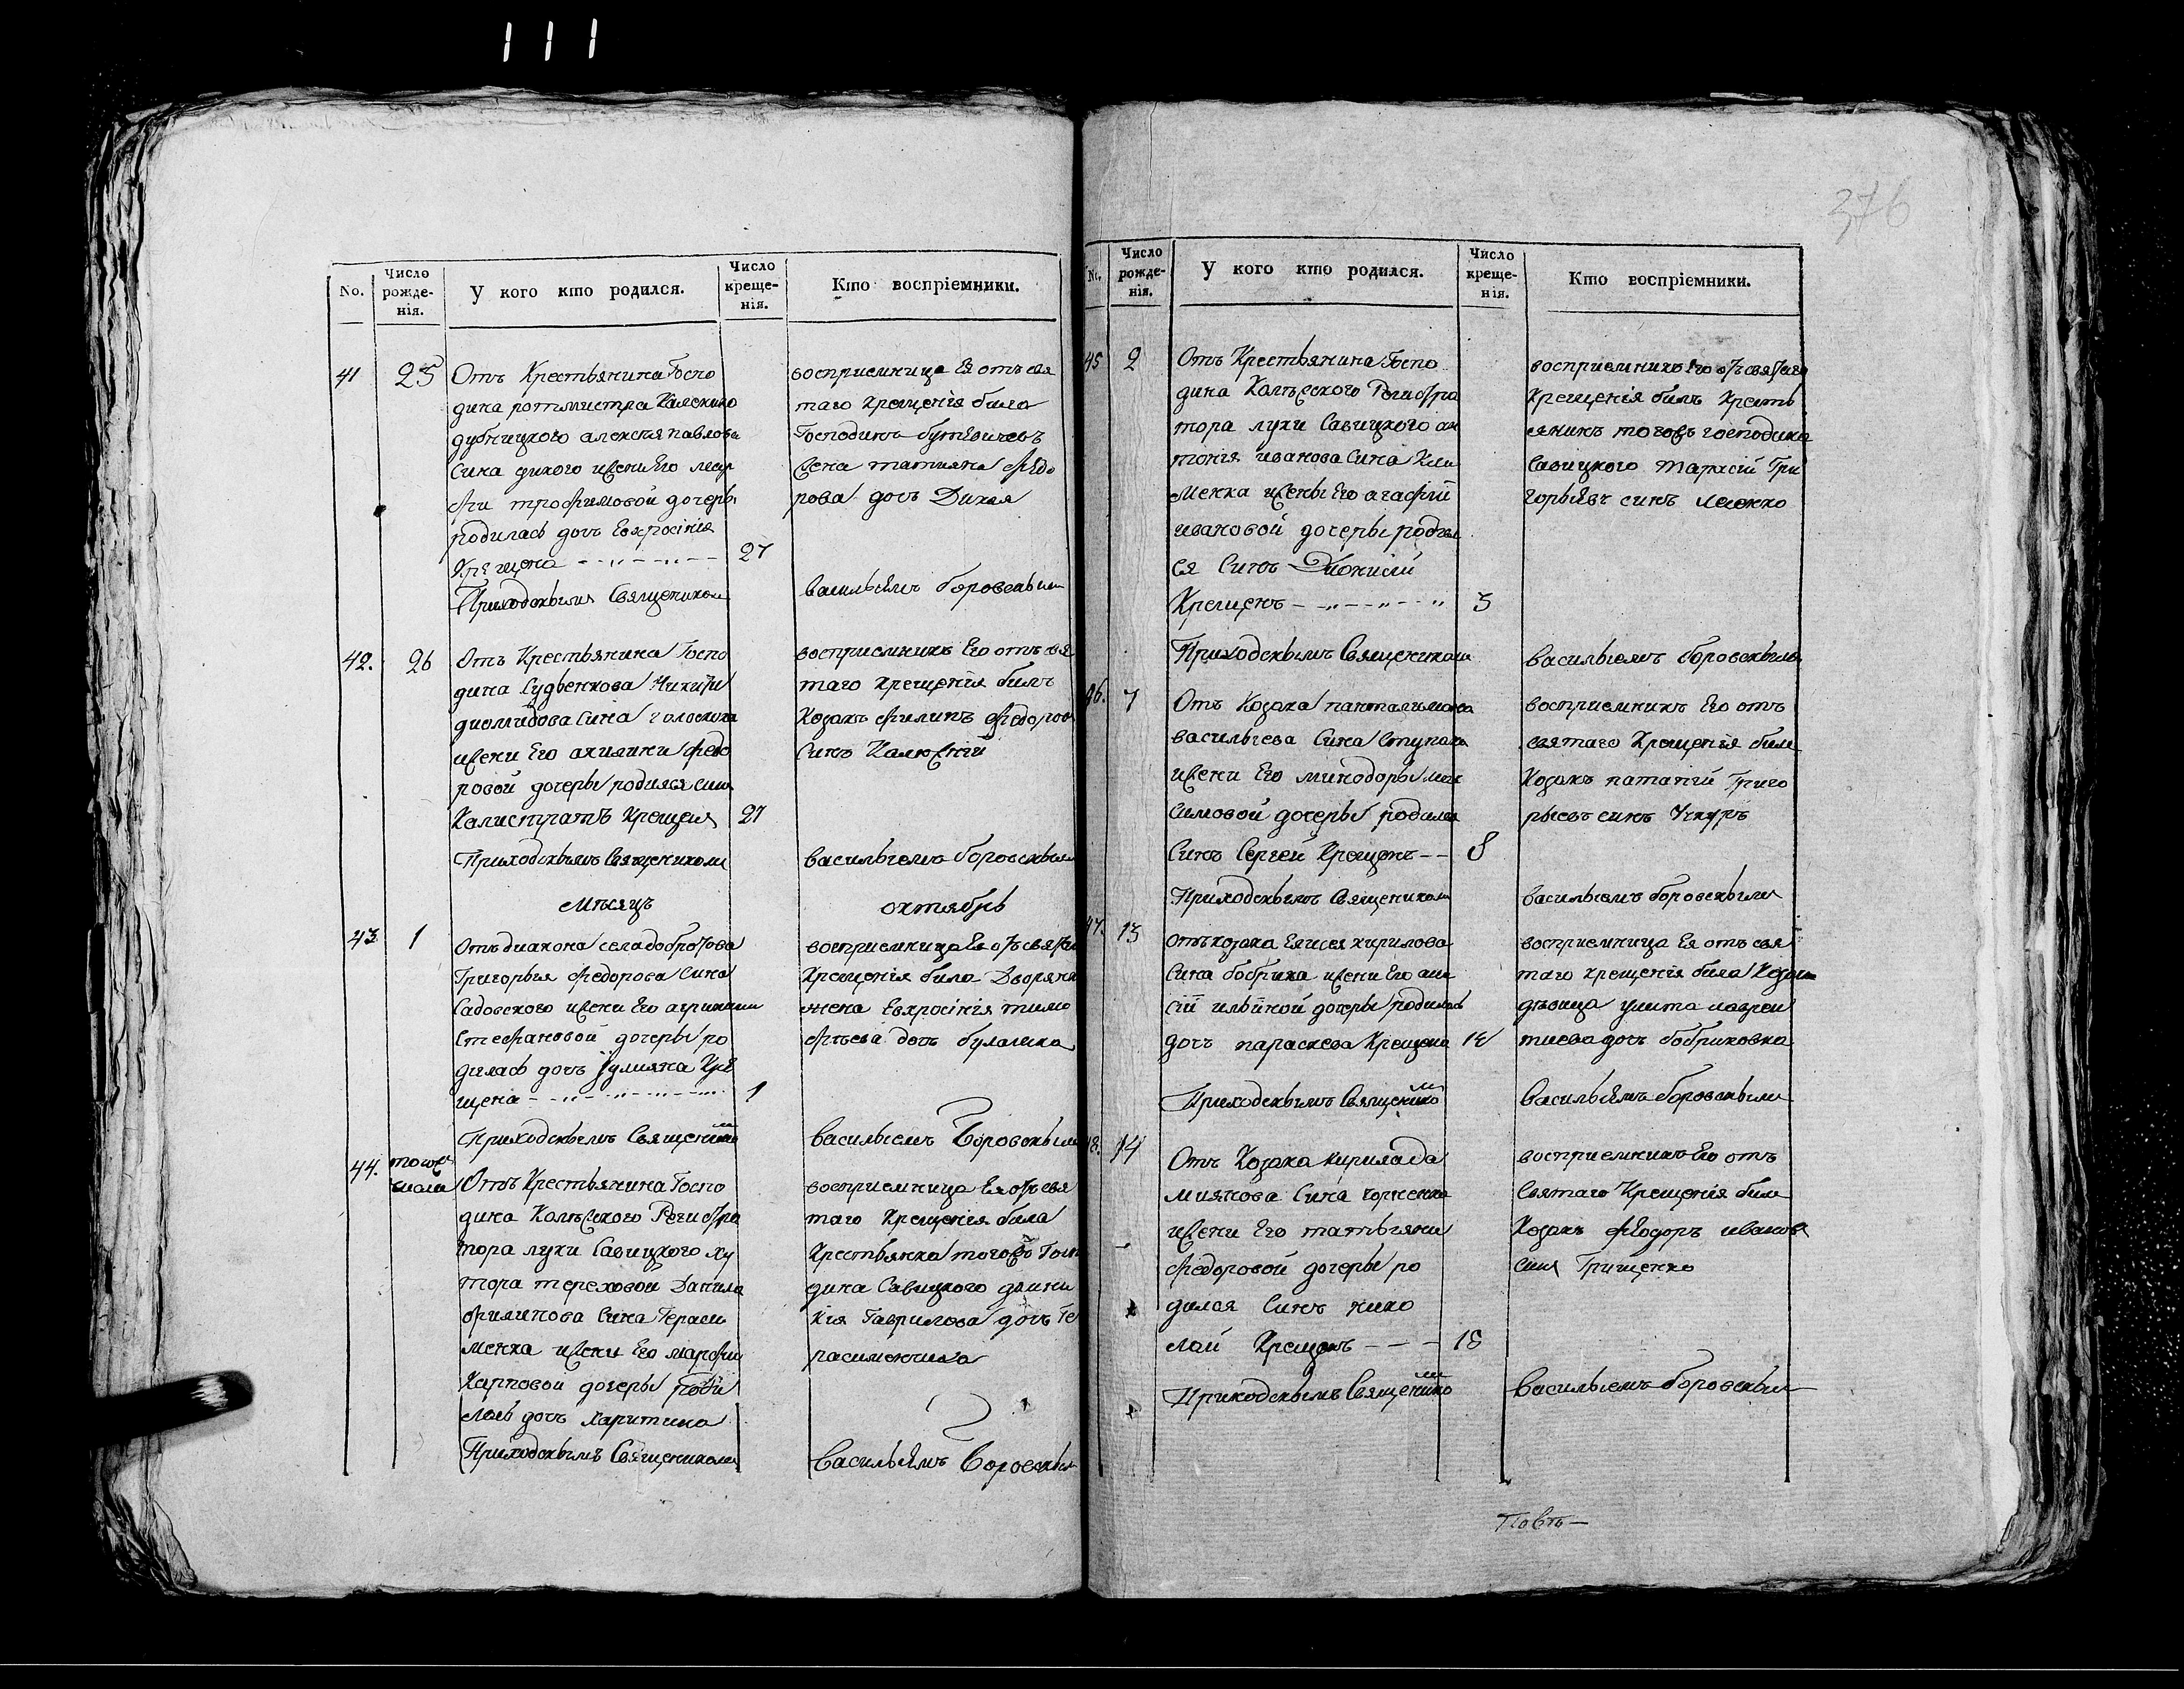 111
376
No.
Число рожденія.
У кого кто родился.
Число крещенія.
Кто воспріемники.
41
25
Отъ Крестьянина Госпо
дина ротмистра
дубницкого алексѣя павлова
Сина дикого жени Его мар
фи трофимовой дочеры
родилась дочь Евфросінія
Крещена
27
Приходскымъ Священиком
восприемница Ея отъ свя
таго Крещенія била
Господинъ
жена татияна федо
рова дочъ Дикая
Васильемъ боровскым
42.
26
Отъ Крестьянина Госпо
дина Судьенкова Никити
диомидова Сина
жени Его акилини федо
ровой дочеры родився синъ
Калистратъ Крещен
27
Приходскымъ Священиком
восприемникъ Его отъ свя
таго Крещенія билъ
Козакъ филипъ федоров
Синъ Калюжній
Васильемъ боровскым
Мѣсяцъ
октябрь
43
1
Отъ диакона села добротова
Григорья федорова Сина
Садовского жени Его агрипини
Стефановой дочеры ро
дилась дочъ Іулияна Кре
щена
1
Приходскымъ Священико м
восприемница Ея отъ свята
Крещенія била Дворянк
жена Евфросінія тимо
фѣева дочь булашка
Васильемъ Боровскым
44.
тогож
числа
Отъ Крестьянина Госпо
дина Колѣжкого Регистра
тора луки Савицкого ху
тора тереховой Данила
филипова Сина Гераси
менка жени Его марфи
Карповой дочеры роди
лась дочъ харитина
Приходскымъ Священиком
восприемница Ея отъ свя
таго Крещенія била
Крестьянка тогожъ Госп
дина Савицкого домни
кія Гаврилова дочъ Ге
расименчиха
Васильемъ Боровскым
No.
Число рожденія.
У кого кто родился.
Число крещенія.
Кто воспріемники.
45
2
Отъ Крестьянина Госпо
дина Колѣжского Регистра
тора луки Савицкого ан
тонія иванова Сина Кли
менка жены Его агафій
ивановой дочеры родил
ся Синъ Дионисій
Крещенъ
3
Приходскымъ Священиком
восприемникъ Его отъ святаго
Крещенія билъ Крестъ
янинъ тогожъ господина
Савицкого тарасій Гри
горьевъ синъ
Васильемъ боровскым
46.
7
Отъ Козака панталимона
васильева Сина Ступака
жени Его минодоры мак
симовой дочеры родился
Синъ Сергей Крещенъ
8
Приходскымъ Священиком
восприемникъ Его отъ
святаго Крещенія билъ
Козакъ патапій Григо
рьевъ синъ
Васильемъ боровскым
47.
13
отъ козака Елисея кирилова
Сина бобрика жени Его ана
сій ильиной дочеры родилась
дочъ параскева Крещена
14
Приходскымъ Священико м
восприемница Ея отъ свя
таго крещенія била Козач
дѣвица улита лаврен
тиева дочъ бобриковна
Васильемъ боровскым
48.
14
Отъ Козака кирила да
миянова Сина
жени Его татьяни
федоровой дочеры ро
дился Синъ нико
лай Крещенъ
18
Приходскымъ Священико м
восприемникъ Его отъ
Святаго Крещенія билъ
Козакъ феодоръ иванов
Синъ Грищенко
Васильемъ боровскым
Повѣ—